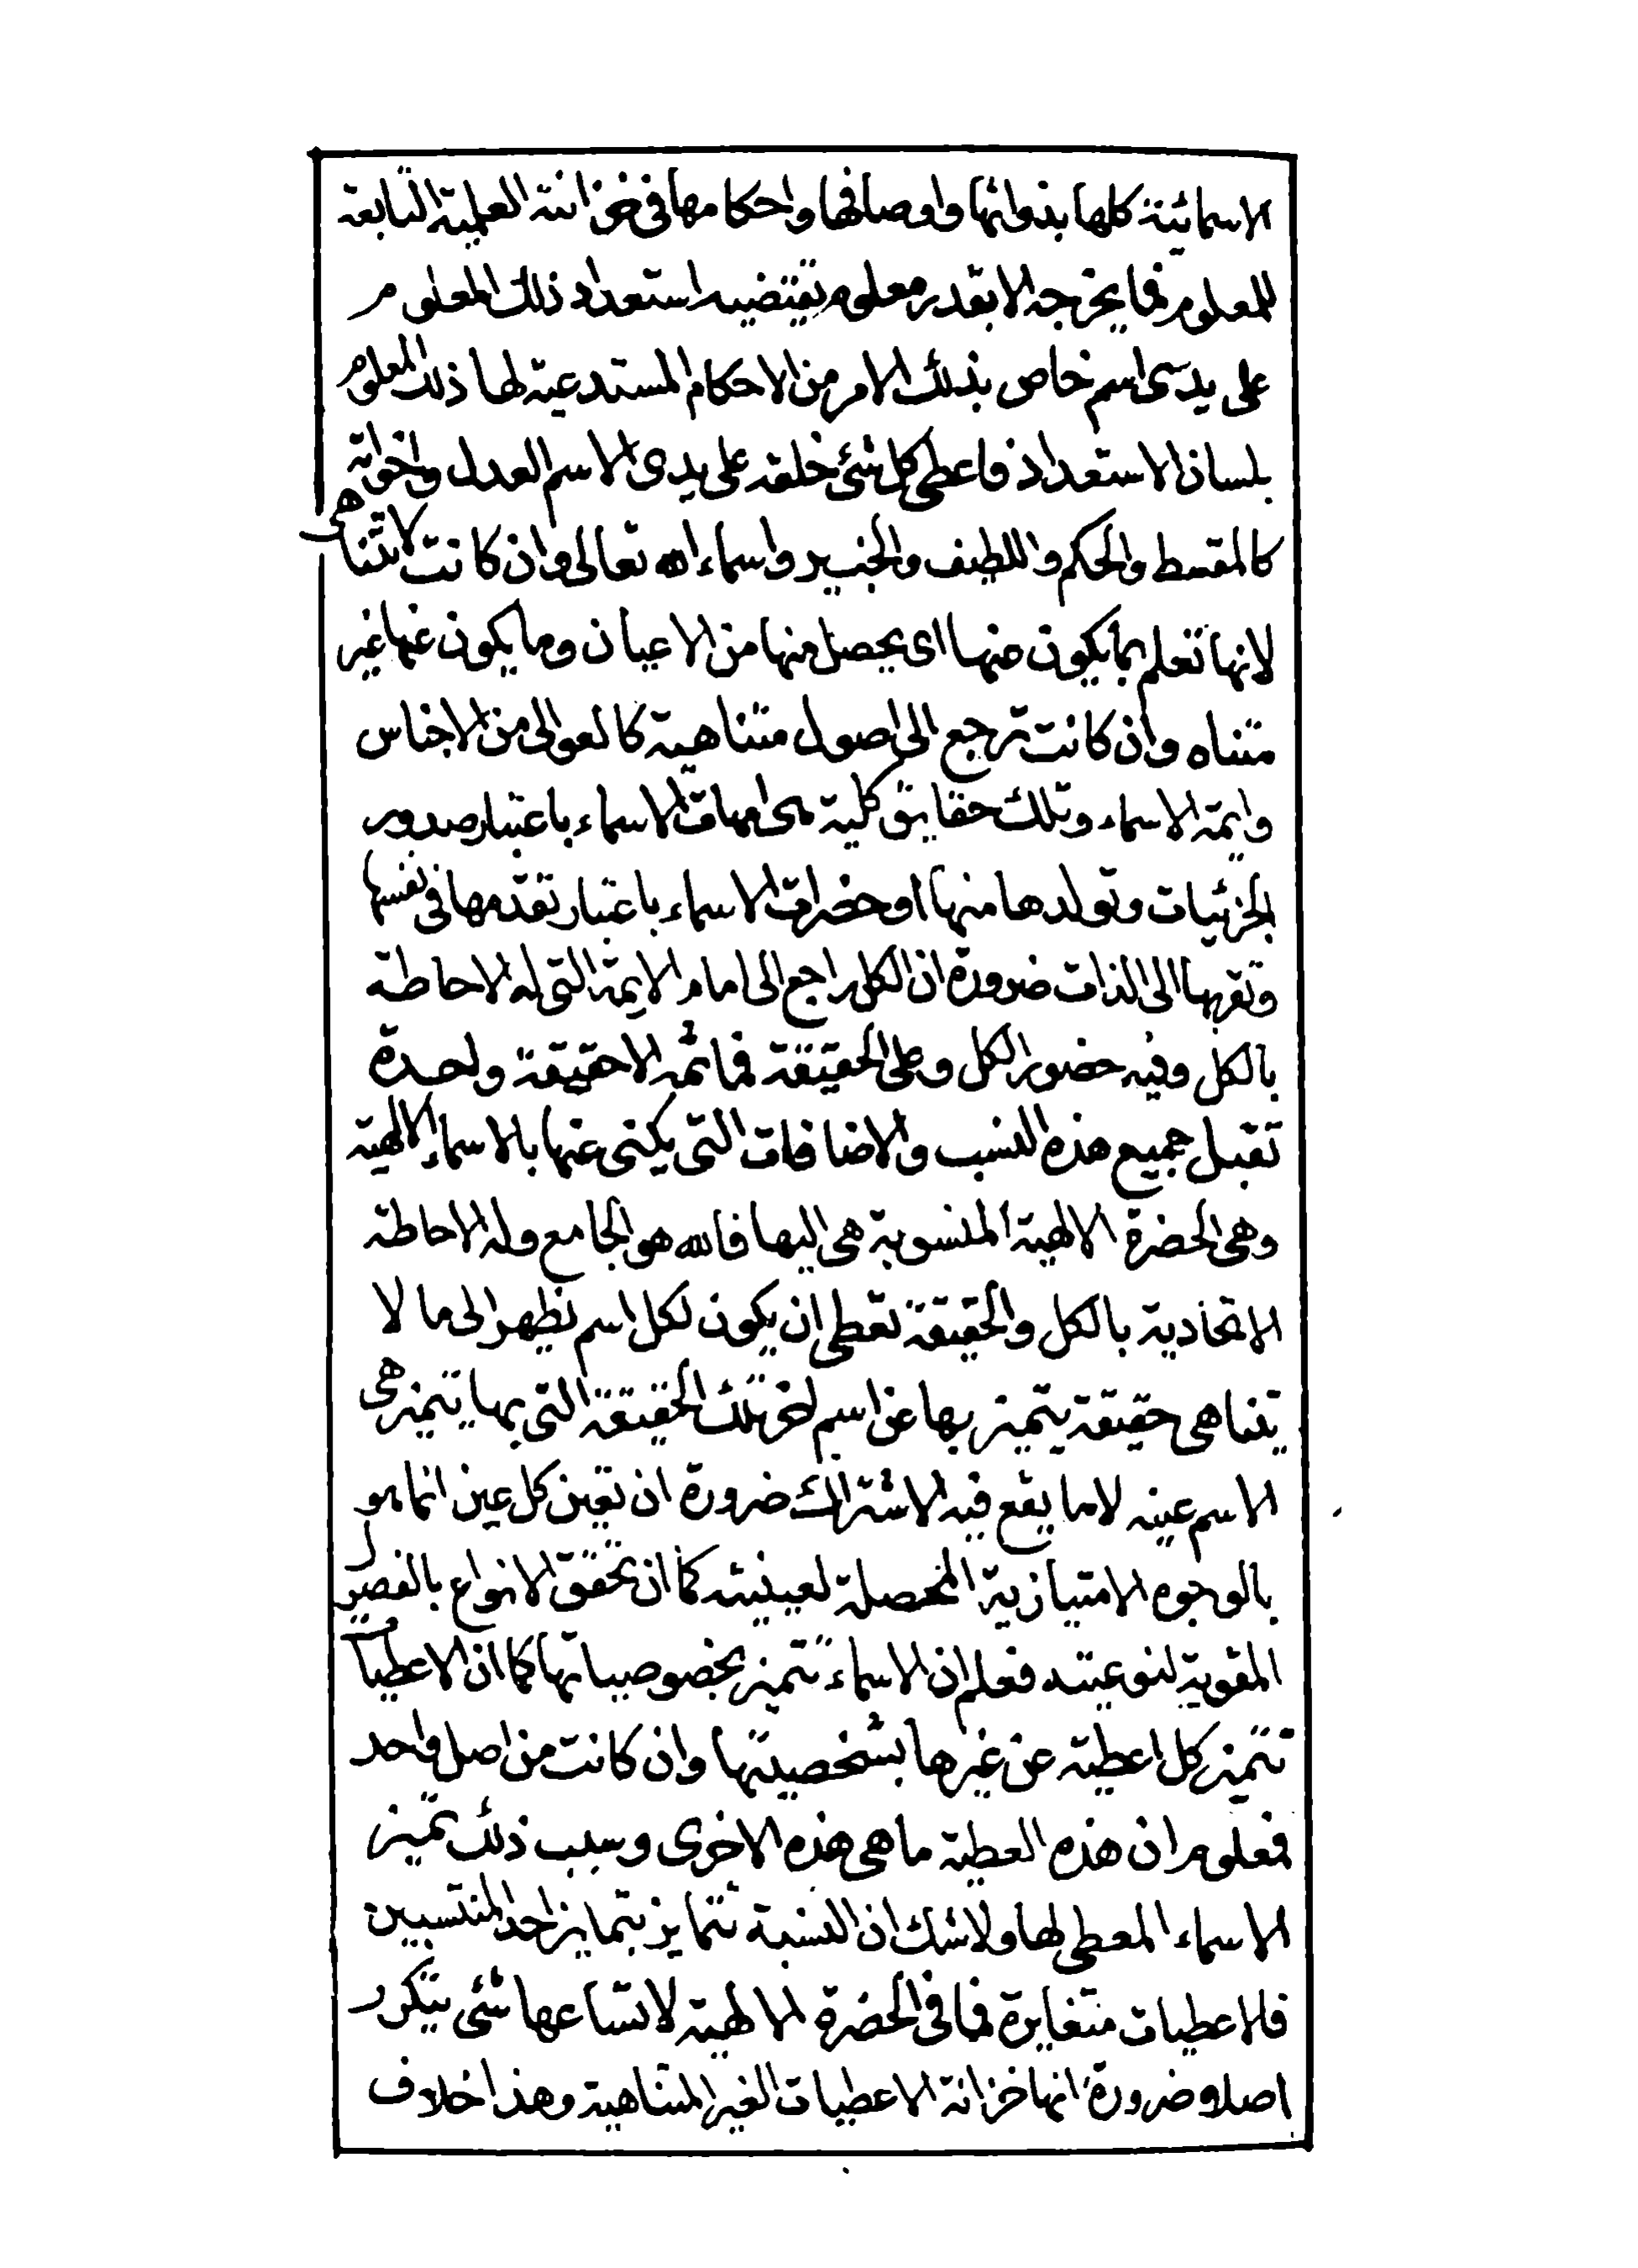 الاسمائية كلها بذواتها واوصافها واحكامها فى خزانته العلمية التابعة
للمعلوم فما يخرجه الا بقدر معلوم يقتضيه استعداد ذلك المعلوم
على يدى اسم خاص بذلك الامر من الاحكام المستدعية لها ذلك المعلوم
بلسان الاستعداد فاعطى كل شئ خلقه على يدى الاسم العدل واخواته
كالمقسط والحكم واللطيف والخبير واسماء الله تعالى وان كانت لا تتناهى
لانها تعلم بما يكون عنها اى يحصل منها من الاعيان وما يكون عنها غير
متناه وان كانت ترجع الى اصول متناهية كالعوالى من الاجناس
وائمة الاسماء وتلك حقايق كلية هى امهات الاسماء باعتبار صدور
الجزئيات وتولدها منها او حضرات الاسماء باعتبار تقدمها فى نفسها
وتقربها الى الذات ضرورة ان الكل راجع الى امام الايمة التى له الاحاطة
بالكل وفيه حضور الكل وعلى الحقيقة فما ثمه الا حقيقة واحدة
تقبل جميع هذه النسب والاضافات التى يكنى عنها بالاسماء الالهية
وهى الحضرة الالهية المنسوبة هى اليها فالله هو الجامع وله الاحاطة
الاتحادية بالكل والحقيقة تعطى ان يكون لكل اسم يظهر الى ما لا
يتناهى حقيقة يتميز بها عن اسم اخر تلك الحقيقة التى بها يتميز هى
الاسم عينه لا ما يقع فيه الاشتراك ضرورة ان تعين كل عين انما هو
بالوجوه الامتيازية المحصلة لعينيته كما ان تحقق الانواع بالفصول
المقومة لنوعيته فعلم ان الاسماء تتميز بخصوصياتها كما ان الاعطيات
تتميز كل اعطية عن غيرها بشخصيتها وان كانت من اصل واحد
فمعلوم ان هذه العطية ما هى هذه الاخرى وسبب ذلك تميز
الاسماء المعطى لها ولا شك ان النسبة تتمايز بتمايز احد المنتسبين
فالاعطيات متغايرة فما فى الحضرة الالهية لاتساعها شئ يتكرر
اصلا وضرورة انها خزانة الاعطيات الغير المتناهية وهذا خلاف